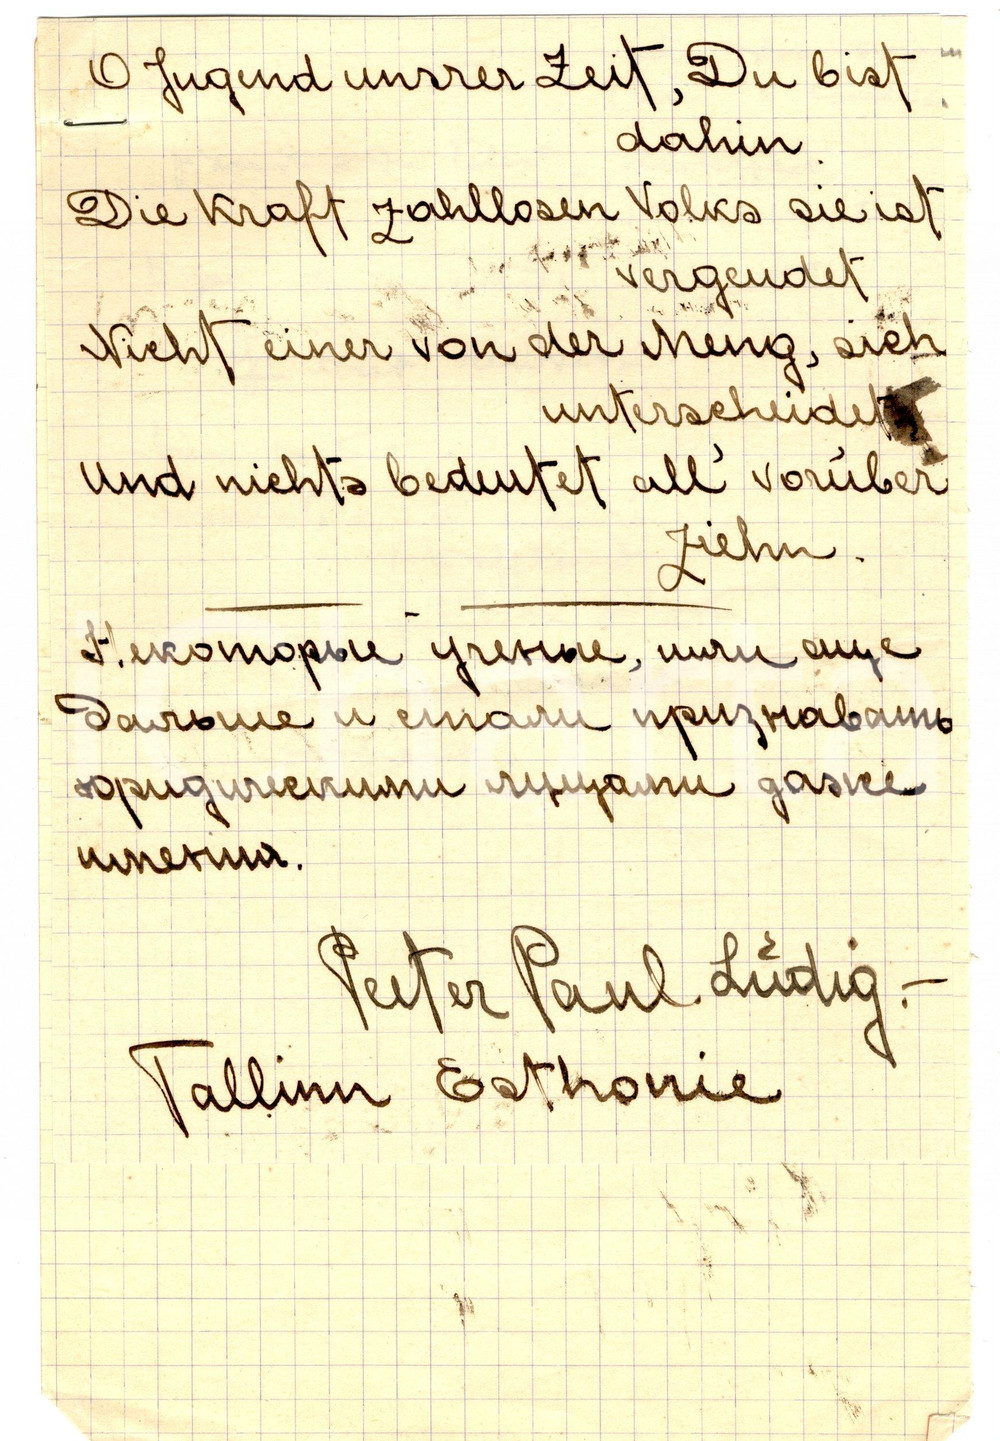 O Jugend unsrer Zeit, Du bist
dahin.
Die Kraft zahllosen Volks sie ist
vergeudet
Nicht einer von der Meng, sich
unterscheidet
Und nichts bedeutet all' vorüber
ziehn.
Некоторые ученые, шли еще
дальше и стали признавать
юридическими лицами даже
имения.
Peeter Paul Lüdig.-
Tallinn Esthonie